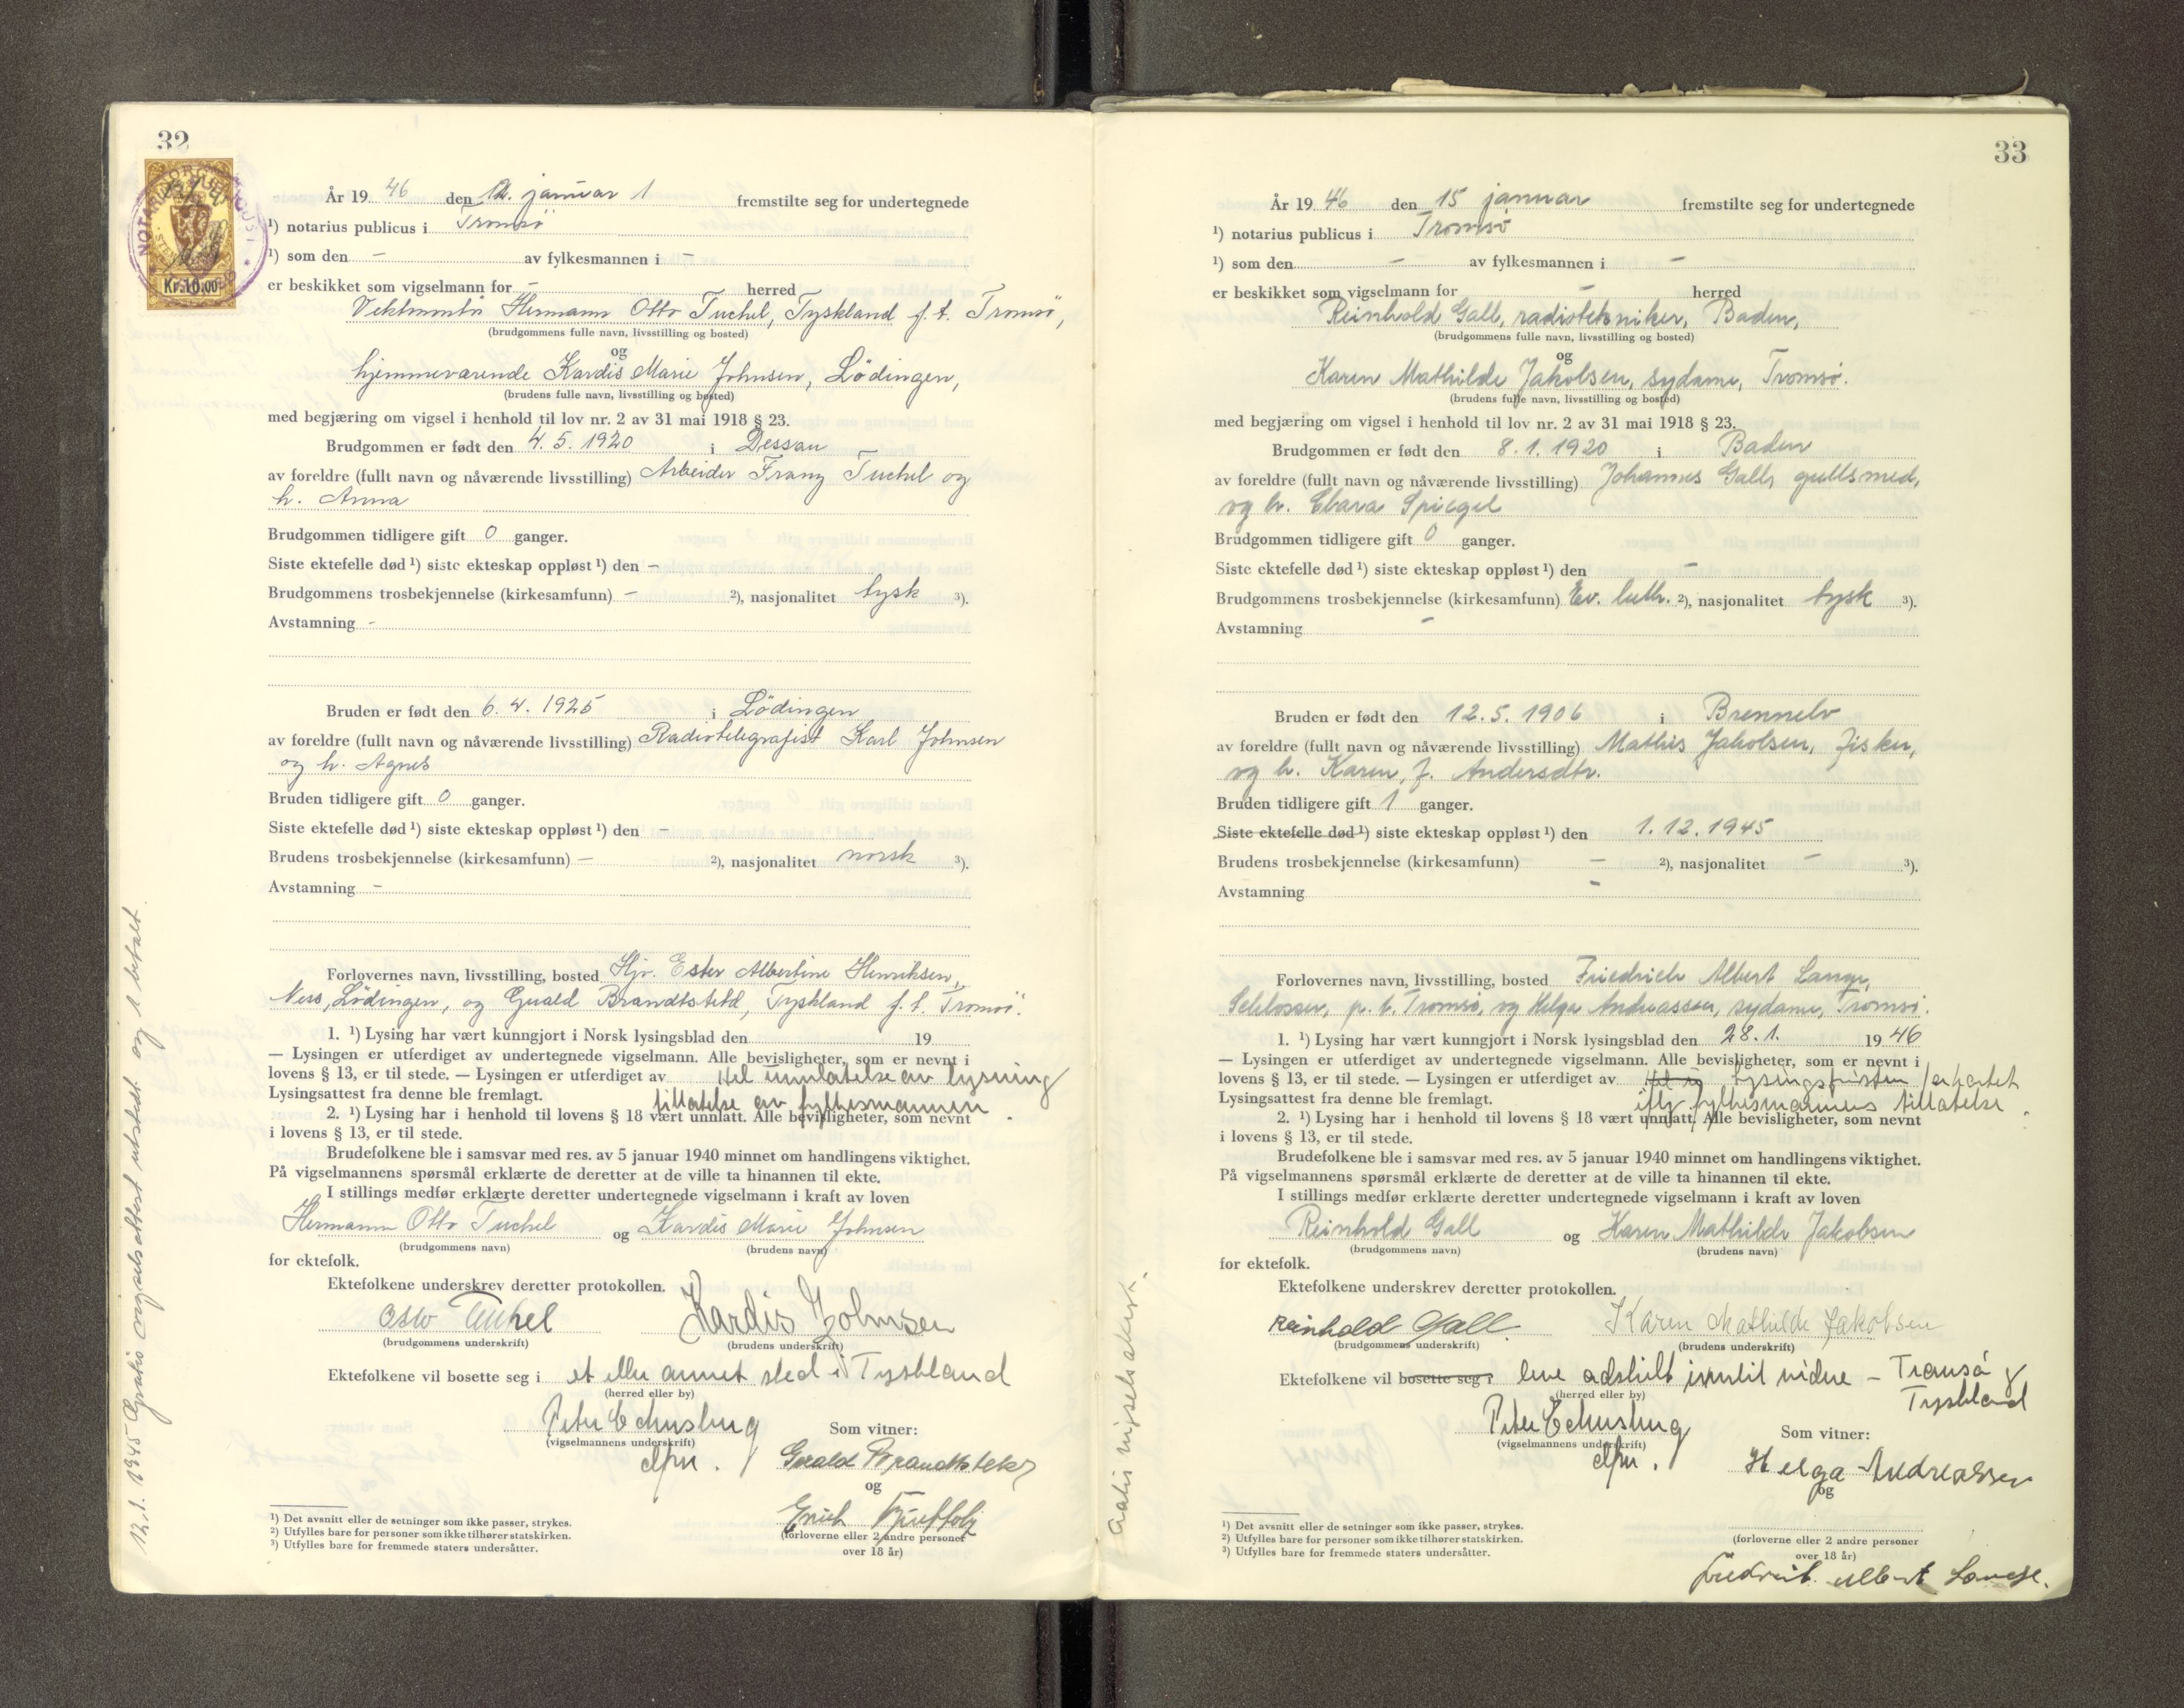 32
NOTARIUS PUBLICUS
Kr.10.00
År 19 46 den 12. januar 1 fremstilte seg for undertegnede
¹) notarius publicus i Tromsö
¹) som den - av fylkesmannen i -
er beskikket som vigselmann for - herred
Hermann Otto Tuchel, Tyskland f. t. Tromsö,
(brudgommens fulle navn, livsstilling og bosted)
og
hjemmeværende Kardis Marie Johnsen, Lödingen,
(brudens fulle navn, livsstilling og bosted)
med begjæring om vigsel i henhold til lov nr. 2 av 31 mai 1918 § 23.
Brudgommen er født den 4. 5. 1920 i Dessau
av foreldre (fullt navn og nåværende livsstilling) Arbeider Franz Tuchel og
h. Anna
Brudgommen tidligere gift 0 ganger.
Siste ektefelle død ¹) siste ekteskap oppløst ¹) den -
Brudgommens trosbekjennelse (kirkesamfunn) - ²), nasjonalitet tysk ³).
Avstamning -
Bruden er født den 6. 4. 1925 i Lödingen
av foreldre (fullt navn og nåværende livsstilling) Radiotelegrafist Karl Johnsen
og h. Agnes
Bruden tidligere gift 0 ganger.
Siste ektefelle død ¹) siste ekteskap oppløst ¹) den -
Brudens trosbekjennelse (kirkesamfunn) - ²), nasjonalitet norsk ³).
Avstamning -
Forlovernes navn, livsstilling, bosted Hjv. Ester Albertine Henriksen,
Ness, Lödingen, og Brandtstetd, Tyskland f. t. Tromsö.
1. ¹) Lysing har vært kunngjort i Norsk lysingsblad den 19
— Lysingen er utferdiget av undertegnede vigselmann. Alle bevisligheter, som er nevnt i
lovens § 13, er til stede. — Lysingen er utferdiget av Hel unnlatelse av lysning
Lysingsattest fra denne ble fremlagt. tillatelse av fylkesmannen.
2. ¹) Lysing har i henhold til lovens § 18 vært unnlatt. Alle bevisligheter, som nevnt
i lovens § 13, er til stede.
Brudefolkene ble i samsvar med res. av 5 januar 1940 minnet om handlingens viktighet.
På vigselmannens spørsmål erklærte de deretter at de ville ta hinannen til ekte.
I stillings medfør erklærte deretter undertegnede vigselmann i kraft av loven
Hermann Otto Tuchel og Kardis Marie Johnsen
(brudgommens navn) (brudens navn)
for ektefolk.
Ektefolkene underskrev deretter protokollen.
Otto Tuchel Kardis Johnsen
(brudgommens underskrift) (brudens underskrift)
Ektefolkene vil bosette seg i et eller annet sted i Tyskland
(herred eller by)
Som vitner:
(vigselmannens underskrift)
og
Erich
(forloverne eller 2 andre personer
over 18 år)
¹) Det avsnitt eller de setninger som ikke passer, strykes.
²) Utfylles bare for personer som ikke tilhører statskirken.
³) Utfylles bare for fremmede staters undersåtter.
12.1. 1945 Gratis vigselsattest utstedt og 1 betalt.
33
År 19 46 den 15 januar fremstilte seg for undertegnede
¹) notarius publicus i Tromsø
¹) som den - av fylkesmannen i -
er beskikket som vigselmann for - herred
Reinhold Gall, radiotekniker, Baden,
(brudgommens fulle navn, livsstilling og bosted)
og
Karen Mathilde Jakobsen, sydame, Tromsø.
(brudens fulle navn, livsstilling og bosted)
med begjæring om vigsel i henhold til lov nr. 2 av 31 mai 1918 § 23.
Brudgommen er født den 8. 1. 1920 i Baden
av foreldre (fullt navn og nåværende livsstilling) Johannes Gall, gullsmed,
og h. Clara Spiegel
Brudgommen tidligere gift 0 ganger.
Siste ektefelle død ¹) siste ekteskap oppløst ¹) den -
Brudgommens trosbekjennelse (kirkesamfunn) Ev. luth. ²), nasjonalitet tysk ³).
Avstamning -
Bruden er født den 12. 5. 1906 i Brennelv
av foreldre (fullt navn og nåværende livsstilling) Mathis Jakobsen, fisker,
og h. Karen, f. Andersdtr.
Bruden tidligere gift 1 ganger.
Siste ektefelle død ¹) siste ekteskap oppløst ¹) den 1. 12. 1945
Brudens trosbekjennelse (kirkesamfunn) - ²), nasjonalitet - ³).
Avstamning -
Forlovernes navn, livsstilling, bosted Friedrich Albert Lange,
Schlosser, p. t. Tromsø, og Helga Andreassen, sydame, Tromsø.
1. ¹) Lysing har vært kunngjort i Norsk lysingsblad den 28. 1. 19 46
— Lysingen er utferdiget av undertegnede vigselmann. Alle bevisligheter, som er nevnt i
lovens § 13, er til stede. — Lysingen er utferdiget av Lysingsfristen forkortet
Lysingsattest fra denne ble fremlagt. iflg. fylkesmannens tillatelse.
2. ¹) Lysing har i henhold til lovens § 18 vært unnlatt. Alle bevisligheter, som nevnt
i lovens § 13, er til stede.
Brudefolkene ble i samsvar med res. av 5 januar 1940 minnet om handlingens viktighet.
På vigselmannens spørsmål erklærte de deretter at de ville ta hinannen til ekte.
I stillings medfør erklærte deretter undertegnede vigselmann i kraft av loven
Reinhold Gall og Karen Mathilde Jakobsen
(brudgommens navn) (brudens navn)
for ektefolk.
Ektefolkene underskrev deretter protokollen.
Reinhold Gall Karen Mathilde Jakobsen
(brudgommens underskrift) (brudens underskrift)
Ektefolkene vil bosette seg i leve adskilt inntil videre – Tromsö og
(herred eller by) Tyskland
Som vitner:
(vigselmannens underskrift)
Helga Andreassen
og
(forloverne eller 2 andre personer
over 18 år)
Friedrich Albert Lange.
¹) Det avsnitt eller de setninger som ikke passer, strykes.
²) Utfylles bare for personer som ikke tilhører statskirken.
³) Utfylles bare for fremmede staters undersåtter.
Gratis vigselsattest.